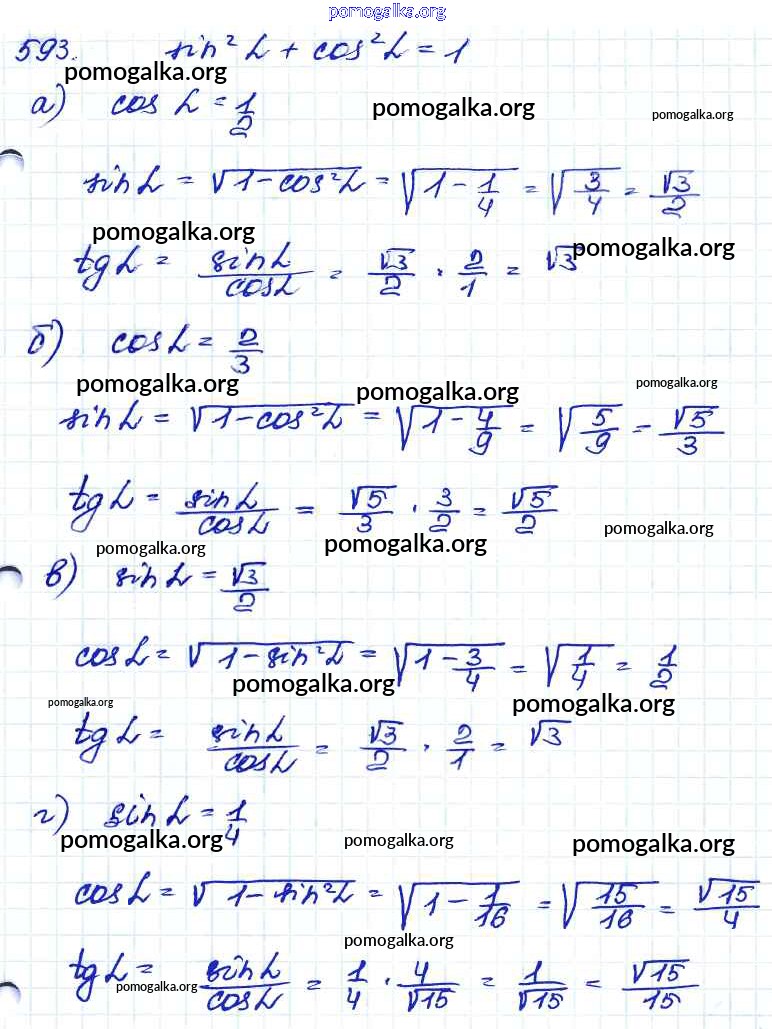 pomogalka.org
593. sin² α + cos² α = 1
pomogalka.org
а) cos α = 1/2
pomogalka.org pomogalka.org
sin α = √(1 - cos² α) = √(1 - 1/4) = √(3/4) = √3/2
pomogalka.org pomogalka.org
tg α = sin α/cos α = √3/2 · 2/1 = √3
б) cos α = 2/3
pomogalka.org pomogalka.org pomogalka.org
sin α = √(1 - cos² α) = √(1 - 4/9) = √(5/9) = √5/3
tg α = sin α/cos α = √5/3 · 3/2 = √5/2
pomogalka.org pomogalka.org pomogalka.org
в) sin α = √3/2
cos α = √(1 - sin² α) = √(1 - 3/4) = √(1/4) = 1/2
pomogalka.org pomogalka.org pomogalka.org
tg α = sin α/cos α = √3/2 · 2/1 = √3
г) sin α = 1/4
pomogalka.org pomogalka.org pomogalka.org
cos α = √(1 - sin² α) = √(1 - 1/16) = √(15/16) = √15/4
pomogalka.org
tg α = sin α/cos α = 1/4 · 4/√15 = 1/√15 = √15/15
pomogalka.org